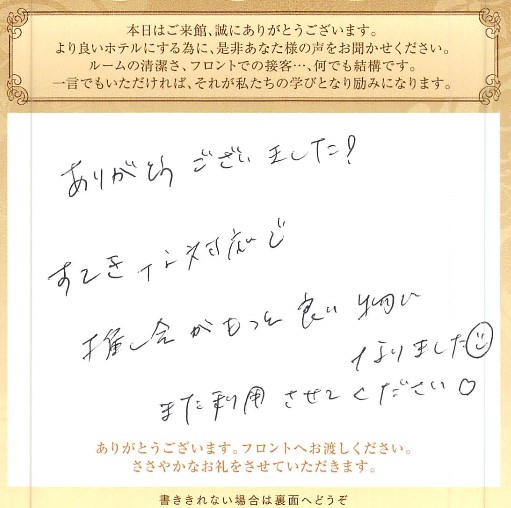 本日はご来館、誠にありがとうございます。
より良いホテルにする為に、是非あなた様の声をお聞かせください。
ルームの清潔さ、フロントでの接客…、何でも結構です。
一言でもいただければ、それが私たちの学びとなり励みになります。
ありがとうございました!
すてきな対応で
推し会がもっと良い物に
なりました
また利用させてください♡
ありがとうございます。フロントへお渡しください。
ささやかなお礼をさせていただきます。
書ききれない場合は裏面へどうぞ